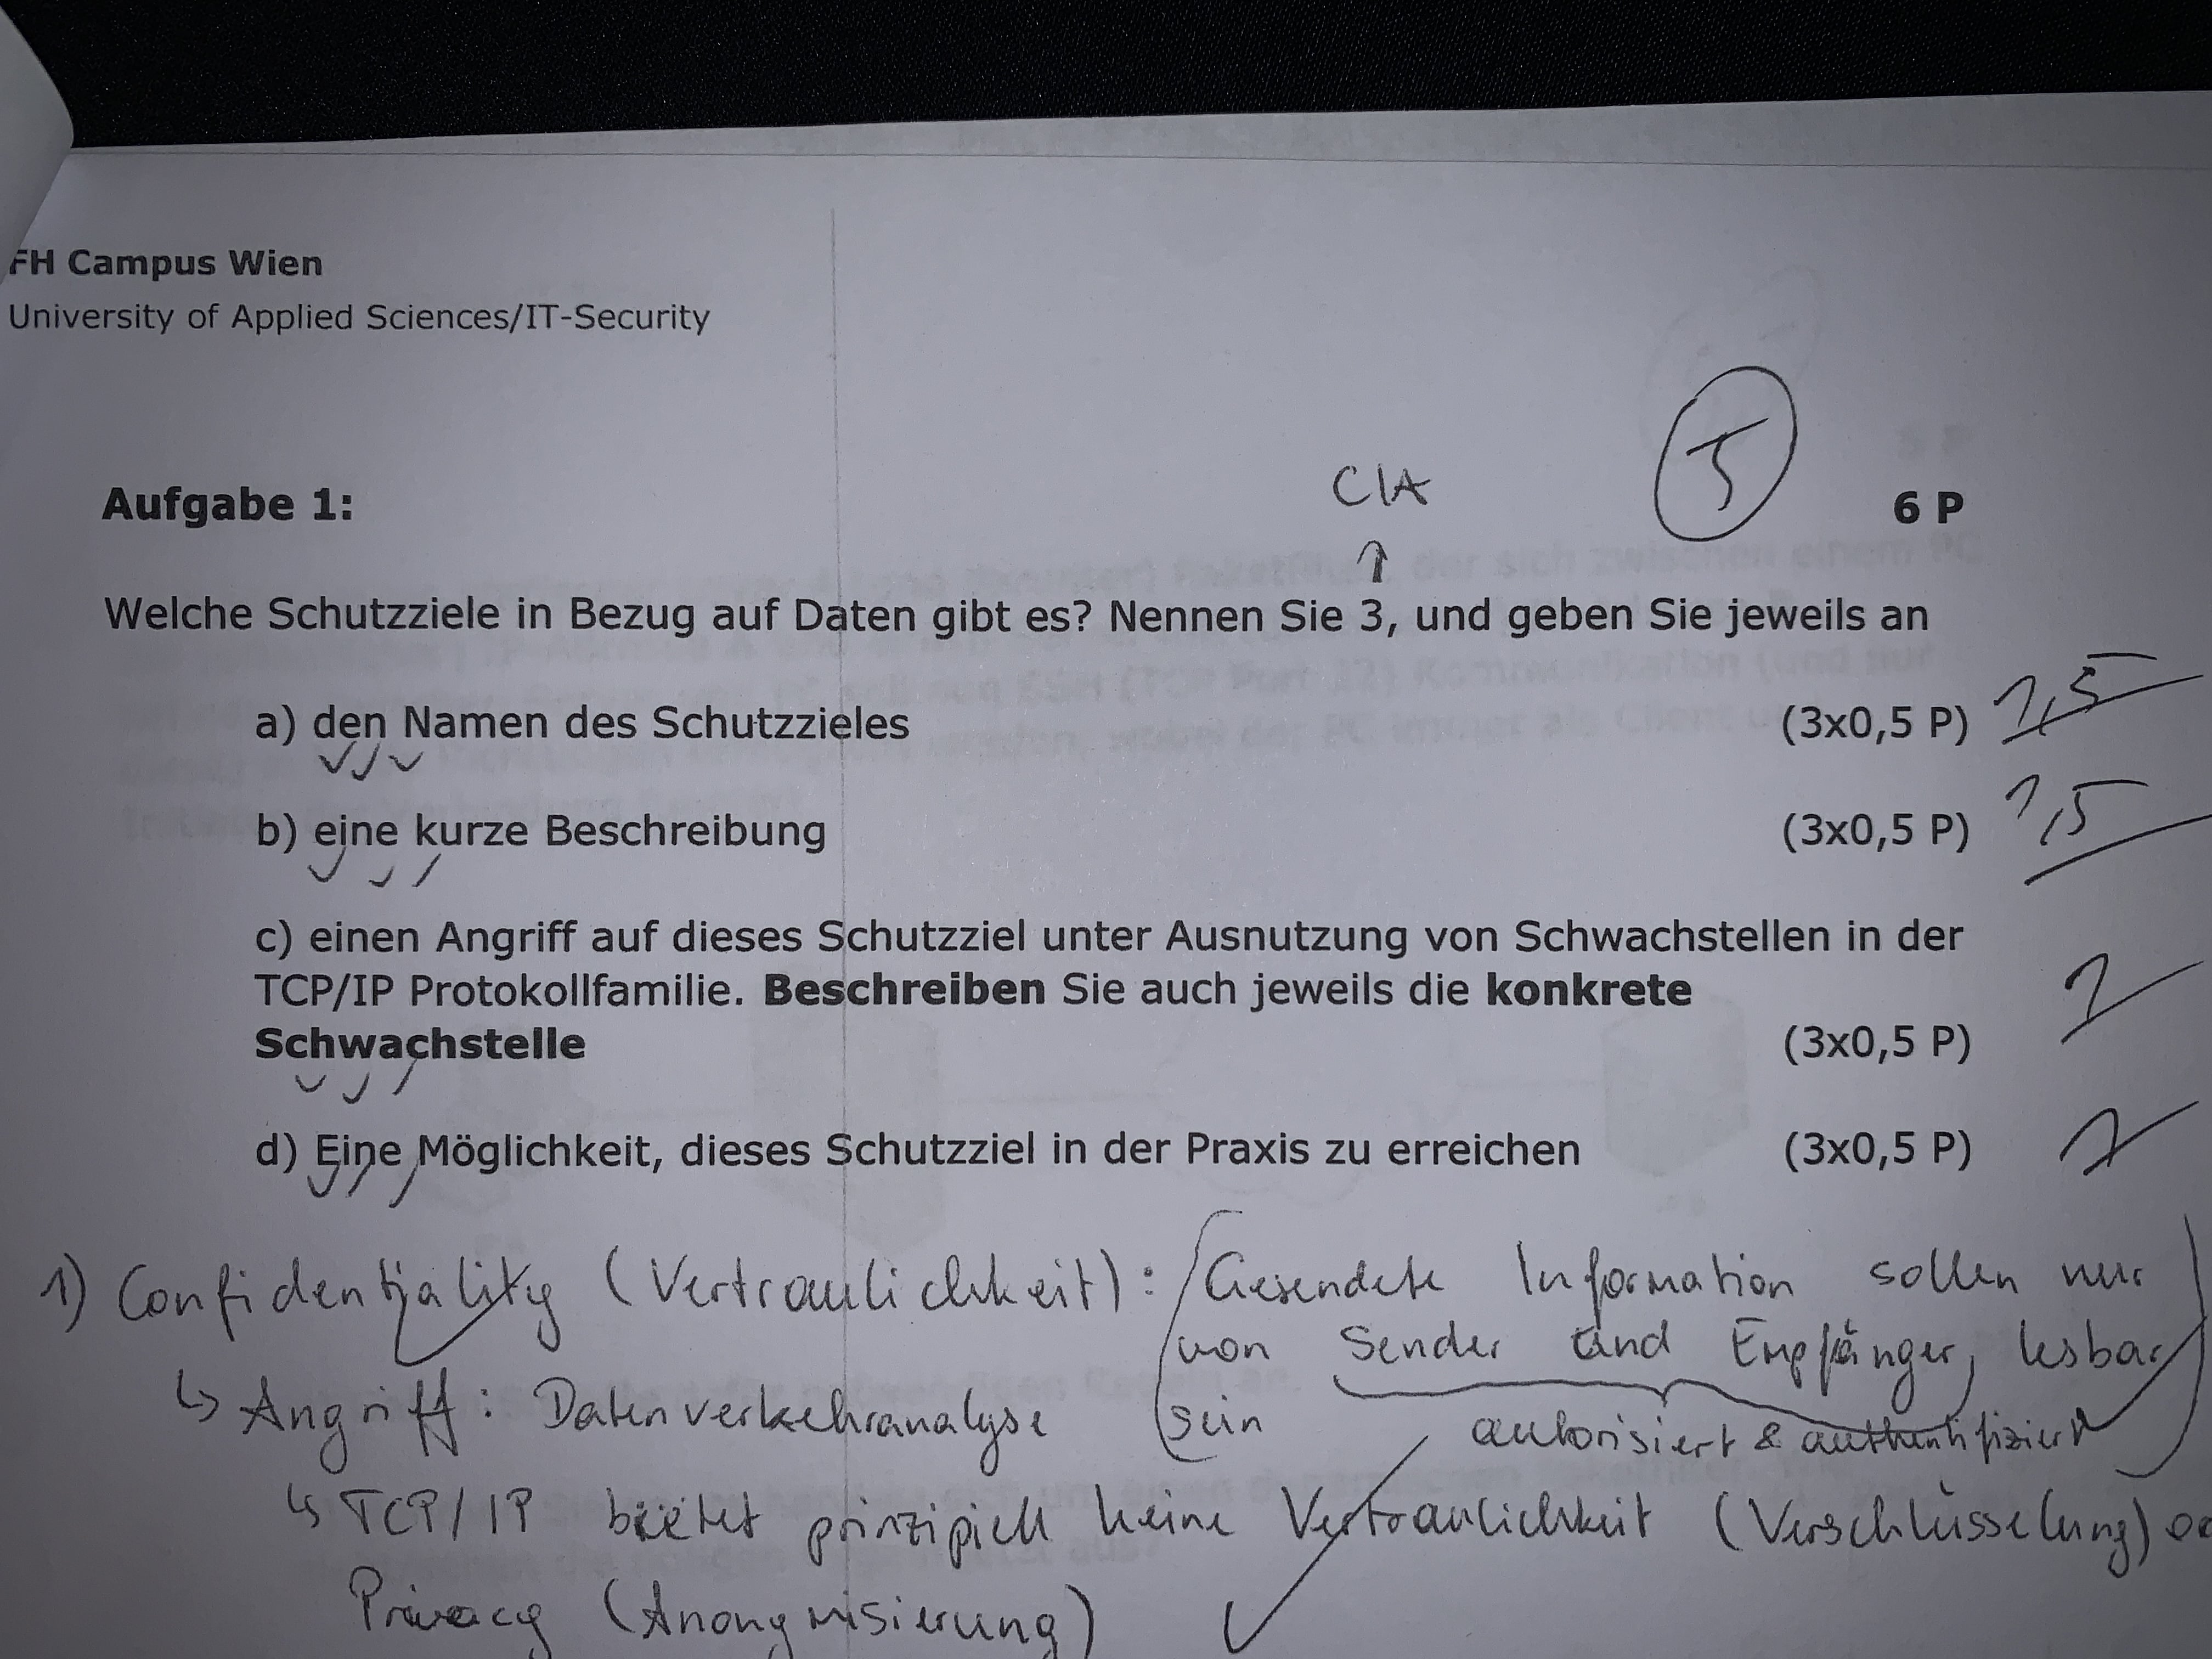 FH Campus Wien
University of Applied Sciences/IT-Security
5
CIA
Aufgabe 1:
6 P
↑
Welche Schutzziele in Bezug auf Daten gibt es? Nennen Sie 3, und geben Sie jeweils an
a) den Namen des Schutzzieles (3x0,5 P) 1,5
b) eine kurze Beschreibung (3x0,5 P) 1,5
c) einen Angriff auf dieses Schutzziel unter Ausnutzung von Schwachstellen in der
TCP/IP Protokollfamilie. Beschreiben Sie auch jeweils die konkrete
Schwachstelle (3x0,5 P) 1
d) Eine Möglichkeit, dieses Schutzziel in der Praxis zu erreichen (3x0,5 P) 1
1) Confidentiality (Vertraulichkeit): (Gesendete Information sollen nur
von Sender und Empfänger lesbar
↳ Angriff: Datenverkehranalyse sein) autorisiert & authentifiziert
↳ TCP/IP bietet prinzipiell keine Vertraulichkeit (Verschlüsselung)
Privacy (Anonymisierung)